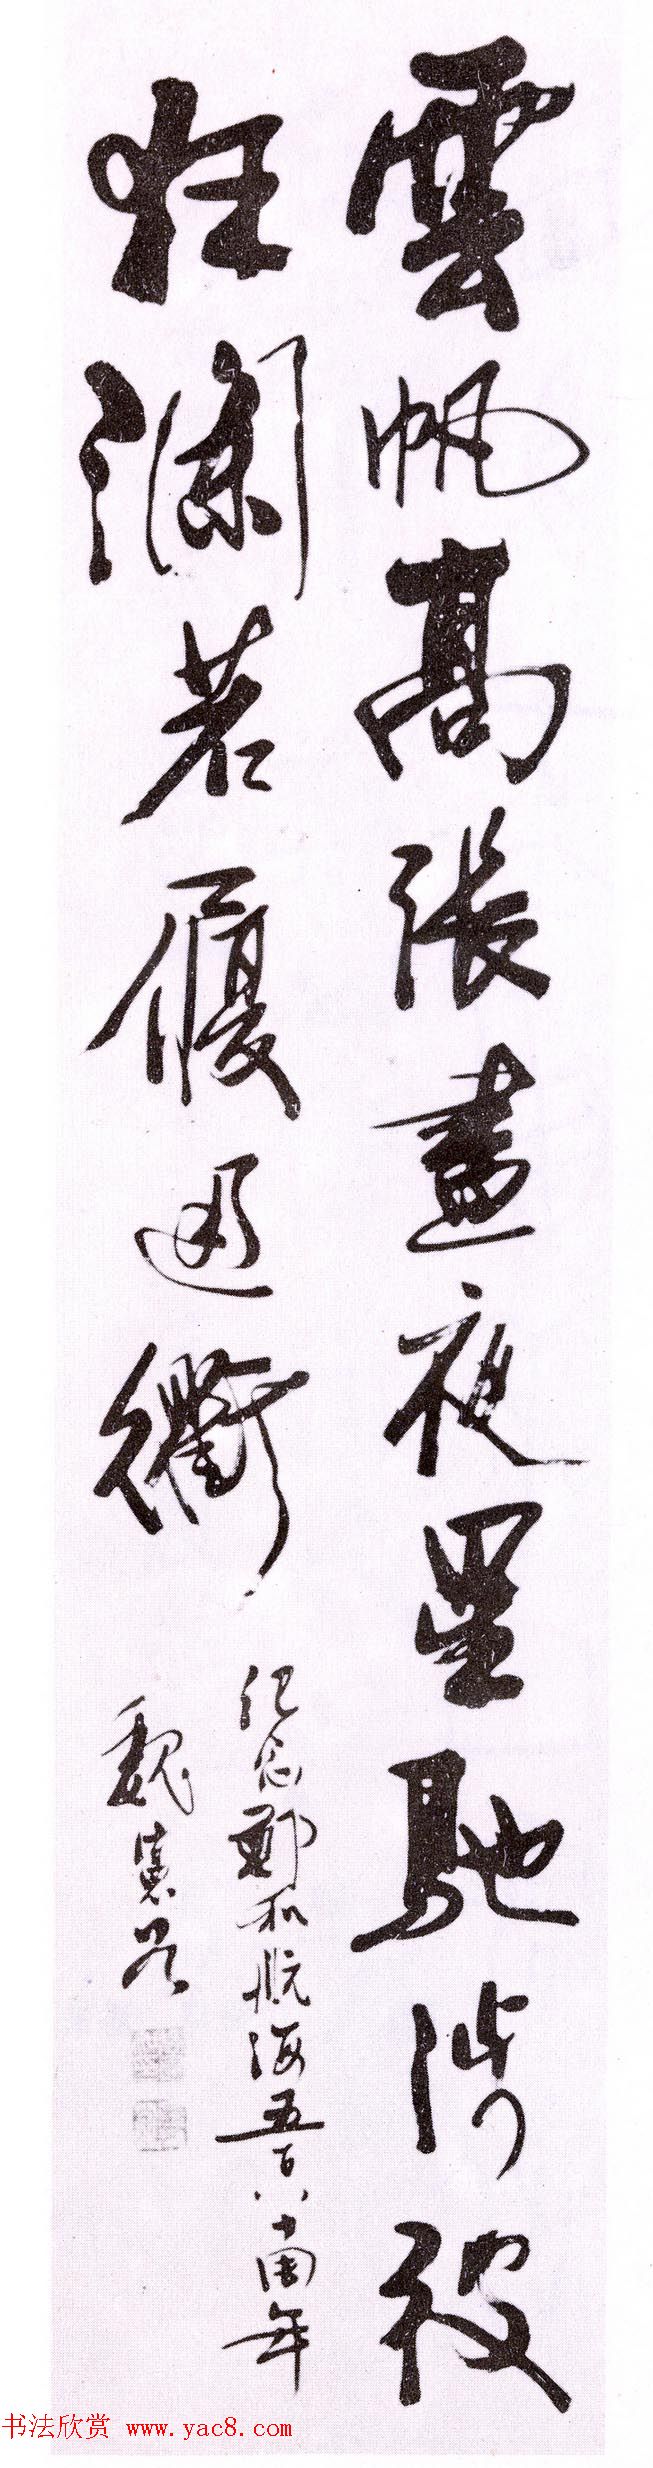 雲帆高張晝夜星馳涉彼
狂瀾若履通衢
紀念鄭和航海五百八十周年
魏憲
书法欣赏 www.yac8.com